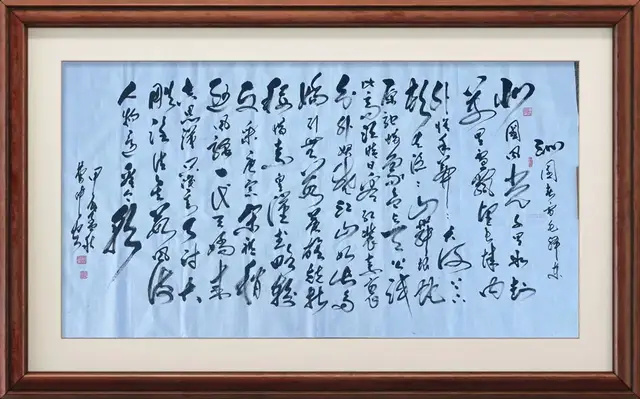 北國風光千里冰封
萬里雪飄望長城内
外惟余莽莽大河上下
顿失滔滔山舞银蛇
原驰蜡象欲与天公试
比高须晴日看红装素裹
分外妖娆江山如此多
娇引无数英雄竞折
腰惜秦皇汉武略输
文采唐宗宋祖稍
逊风骚一代天骄成
吉思漢只識弯弓射大
雕俱往矣数风流
人物还看今朝